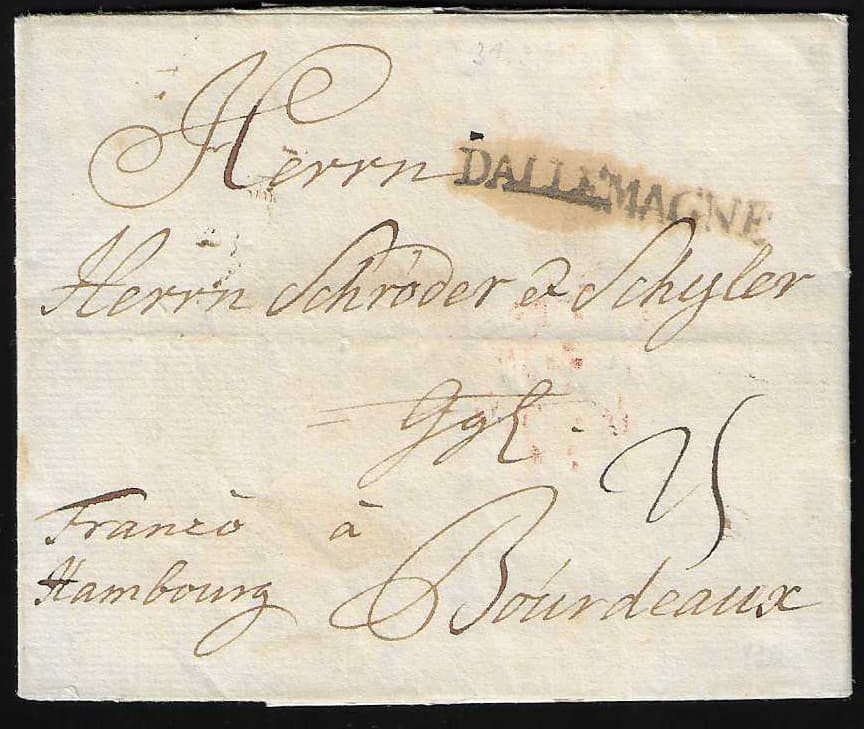 Herrn
DALLEMAGNE
Herrn Schröder & Schyler
Francò à
Hambourg Bourdeaux